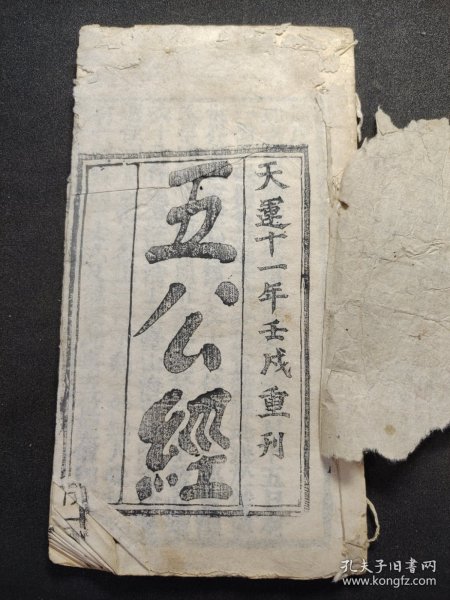 天運十一年壬戌重刋
五公經
孔夫子旧书网
www.kongfz.com